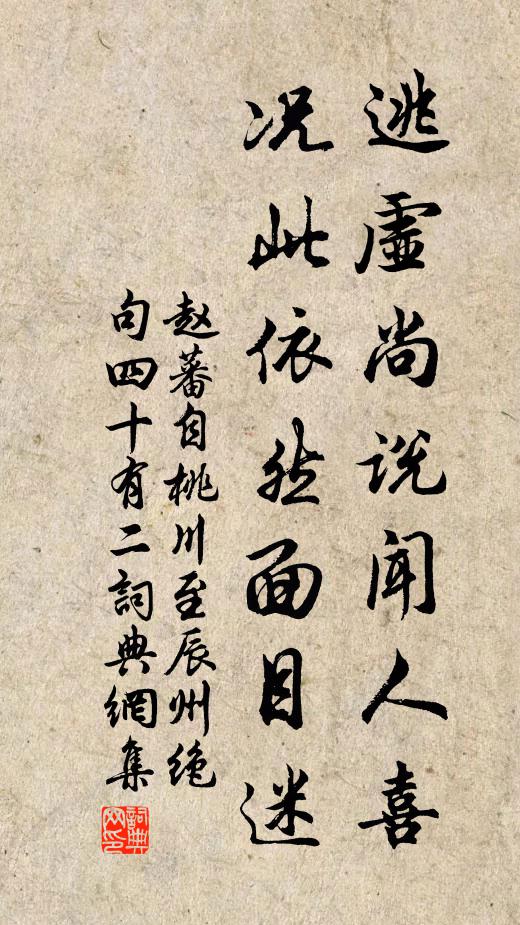 逃虛尚说聞人喜
况此依然面目迷
赵蕃自桃川至辰州绝
句四十有二詞典網集
詞典
网印